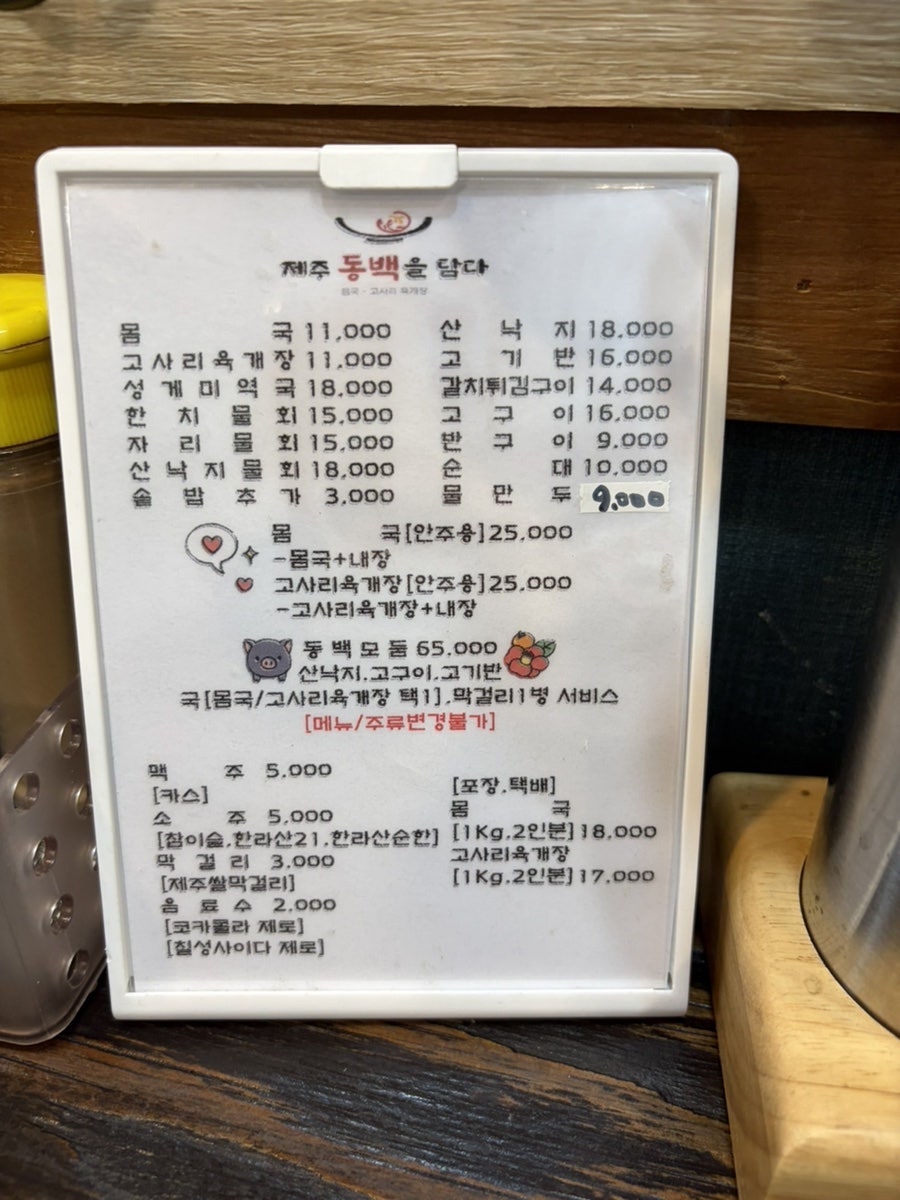 제주 동백을 담다
몸국 · 고사리 육개장
몸 국 11,000
고사리육개장 11,000
성게미역국 18,000
한 치 물 회 15,000
자 리 물 회 15,000
산낙지물회 18,000
솥 밥 추 가 3,000
산 낙 지 18,000
고 기 반 16,000
갈치튀김구이 14,000
고 구 이 16,000
반 구 이 9,000
순 대 10,000
물 만 두 9,000
몸 국[안주용]25,000
-몸국+내장
고사리육개장[안주용]25,000
-고사리육개장+내장
동백모둠 65,000
산낙지.고구이.고기반
국[몸국/고사리육개장 택1].막걸리1병 서비스
[메뉴/주류변경불가]
맥 주 5,000
[카스]
소 주 5,000
[참이슬.한라산21.한라산순한]
막 걸 리 3,000
[제주쌀막걸리]
음 료 수 2,000
[코카콜라 제로]
[칠성사이다 제로]
[포장.택배]
몸 국
[1Kg.2인분]18,000
고사리육개장
[1Kg.2인분]17,000